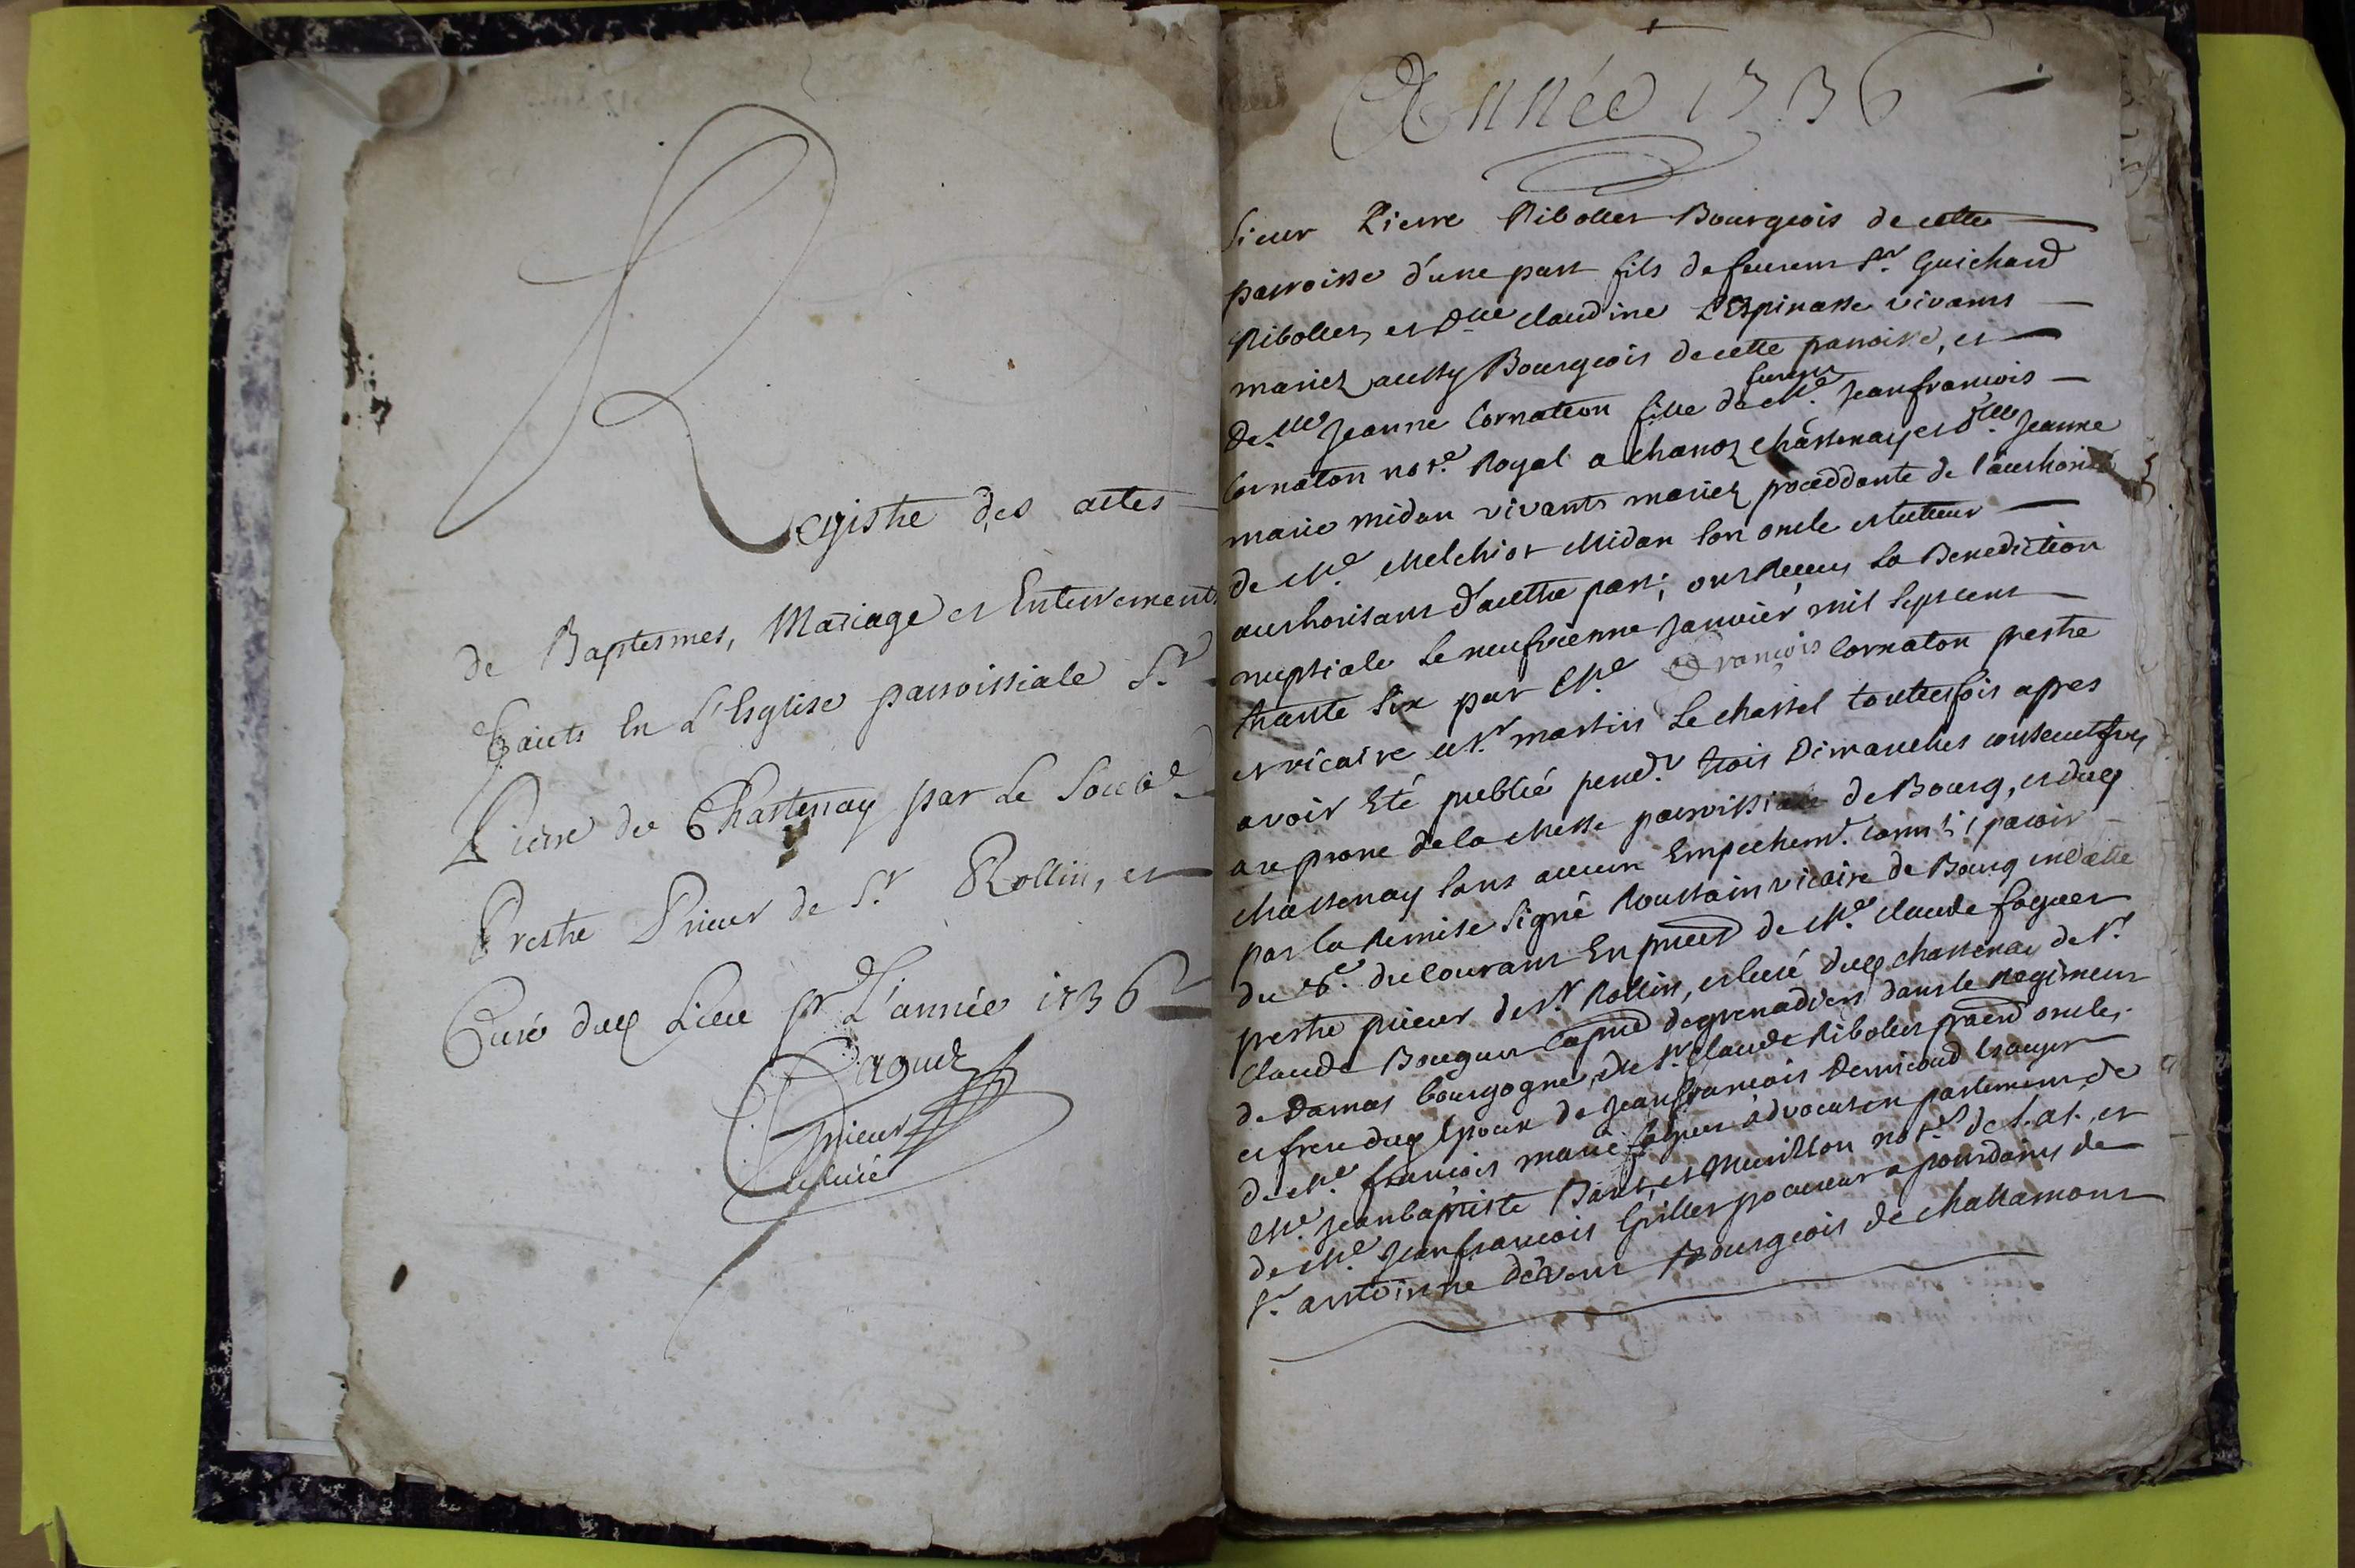 Registre des actes
de Baptesmes, Mariage et Enterrements
faicts En L'Esglise parroissiale St
Pierre de Chastenay par Le Soubné
Prestre Prieur de St Rollin, et
Curé dud Lieu pr L'année 1736
faguet
prieur
et curé
Année 1736
Sieur Pierre Ribollet Bourgeois de cette
parroisse d'une part fils de feurent Sr. Guichard
Ribollet, et Dlle Claudine L'Espinasse vivants
mariez aussy Bourgeois de cette parroisse, et
Delle Jeanne Cornaton fille de feu Me. Jeanfrancois
Cornaton nore. Royal a Chanoz Chastenay et dlle Jeanne
marie midan vivants mariez proceddante de l'authorité
de Me. Melchiot Midan son oncle et tuteur
authorisant d'autre part; ont Receu La Benediction
nuptiale Le neufvienne Janvier mil Sept cent
trante Six par Me francois Cornaton prestre
et vicaire a St. martin Le chastel touttesfois apres
avoir Eté publié pendt. trois Dimanches consecutifves
au prone de la Messe parroissiale de Bourg, et dud
chastenay sans aucun Empechemt.
par la Remise Signé Roussain vicaire de Bourg en datte
du 8e. du courant En present de Me. Claude faguet
prestre prieur de St. Rollin, et curé dud chastenay de Sr.
Claude Bouguet de grenadiers dans le Regiment
de Damas bourgogne, du Sr. Claude Ribollet grand oncle,
et frere dud Epoux de Jeanfrancois
de Me. francois marie faguet advocat en parlement, de
Me. Jeanbaptiste et nores. de S. at. et
de Me. Jeanfrancois Grillet procureur a pondains de
Sr. antoinne Bourgeois de Chattamont